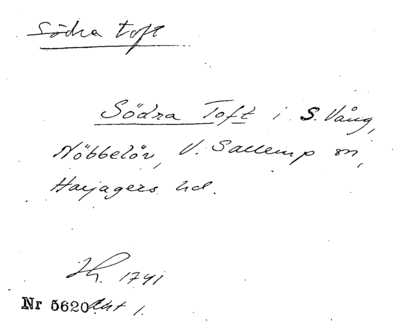 Södra Toft
Södra Toft i S. Vång,
Nöbbelöv, V. Sallerup sn,
Harjagers hd.
Lh. 1741
Nr 5620 akt 1.